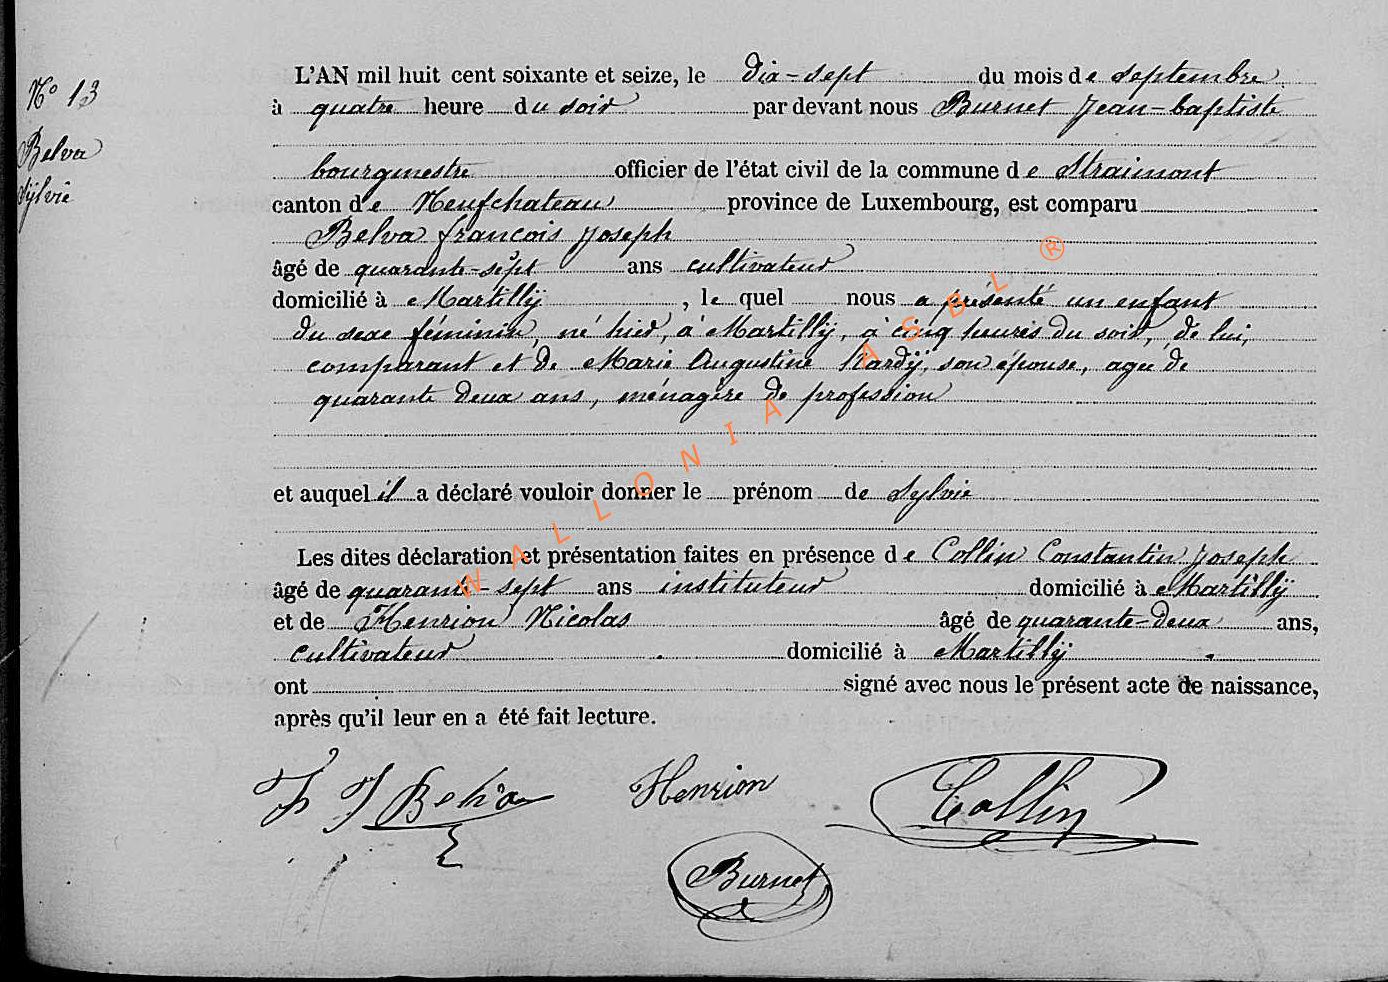 N° 13
Belva
Sÿlvie
L'AN mil huit cent soixante et seize, le dix-sept du mois de septembre
à quatre heure du soir par devant nous Burnet Jean-baptiste
bourgmestre officier de l'état civil de la commune de Straimont
canton de Neufchateau province de Luxembourg, est comparu
Belva francois Joseph
âgé de quarante-sept ans cultivateur
domicilié à Martillÿ, le quel nous a présenté un enfant
du sexe féminin, né hier, à Martillÿ, à cinq heures du soir, de lui,
comparant et de Marie Augustine hardÿ, son épouse, agée de
quarante deux ans, ménagère de profession
et auquel il a déclaré vouloir donner le prénom de Sylvie
Les dites déclaration et présentation faites en présence de Collin Constantin Joseph
âgé de quarante-sept ans instituteur domicilié à Martillÿ
et de Henrion Nicolas âgé de quarante-deux ans,
cultivateur domicilié à Martillÿ
ont signé avec nous le présent acte de naissance,
après qu'il leur en a été fait lecture.
F J Belva Henrion Collin
Burnet
WALLONIA ASBL ®